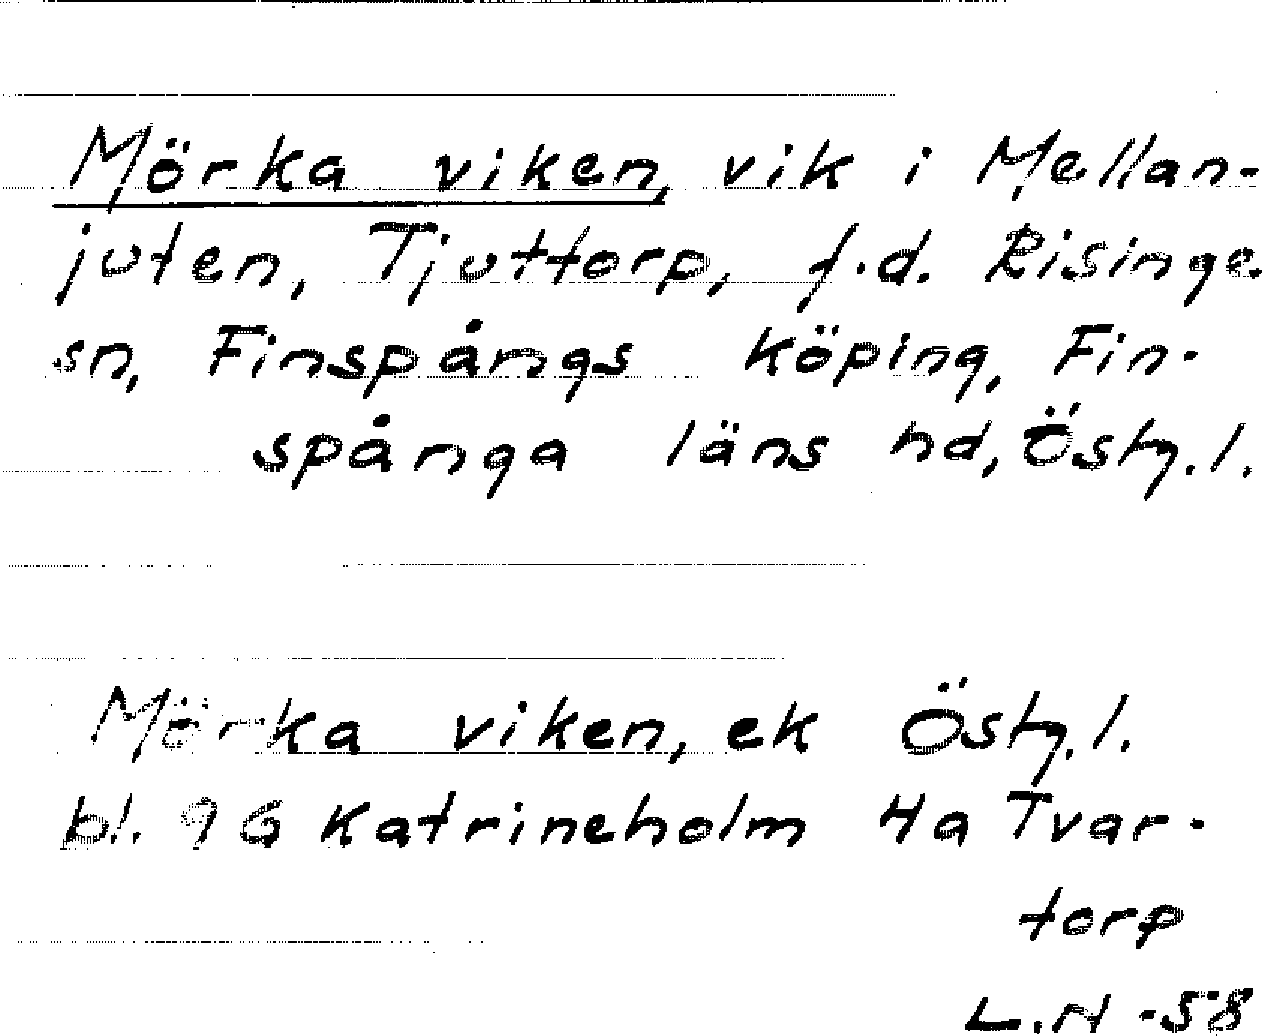 Mörka viken, vik i Mellan-
juten, Tjuttorp, f.d. Risinge
sn, Finspångs köping, Fin-
spånga läns hd, Östg.l.
Mörka viken, ek Östg.l.
bl. 9G Katrineholm 4a Tvar-
torp
L.H -58